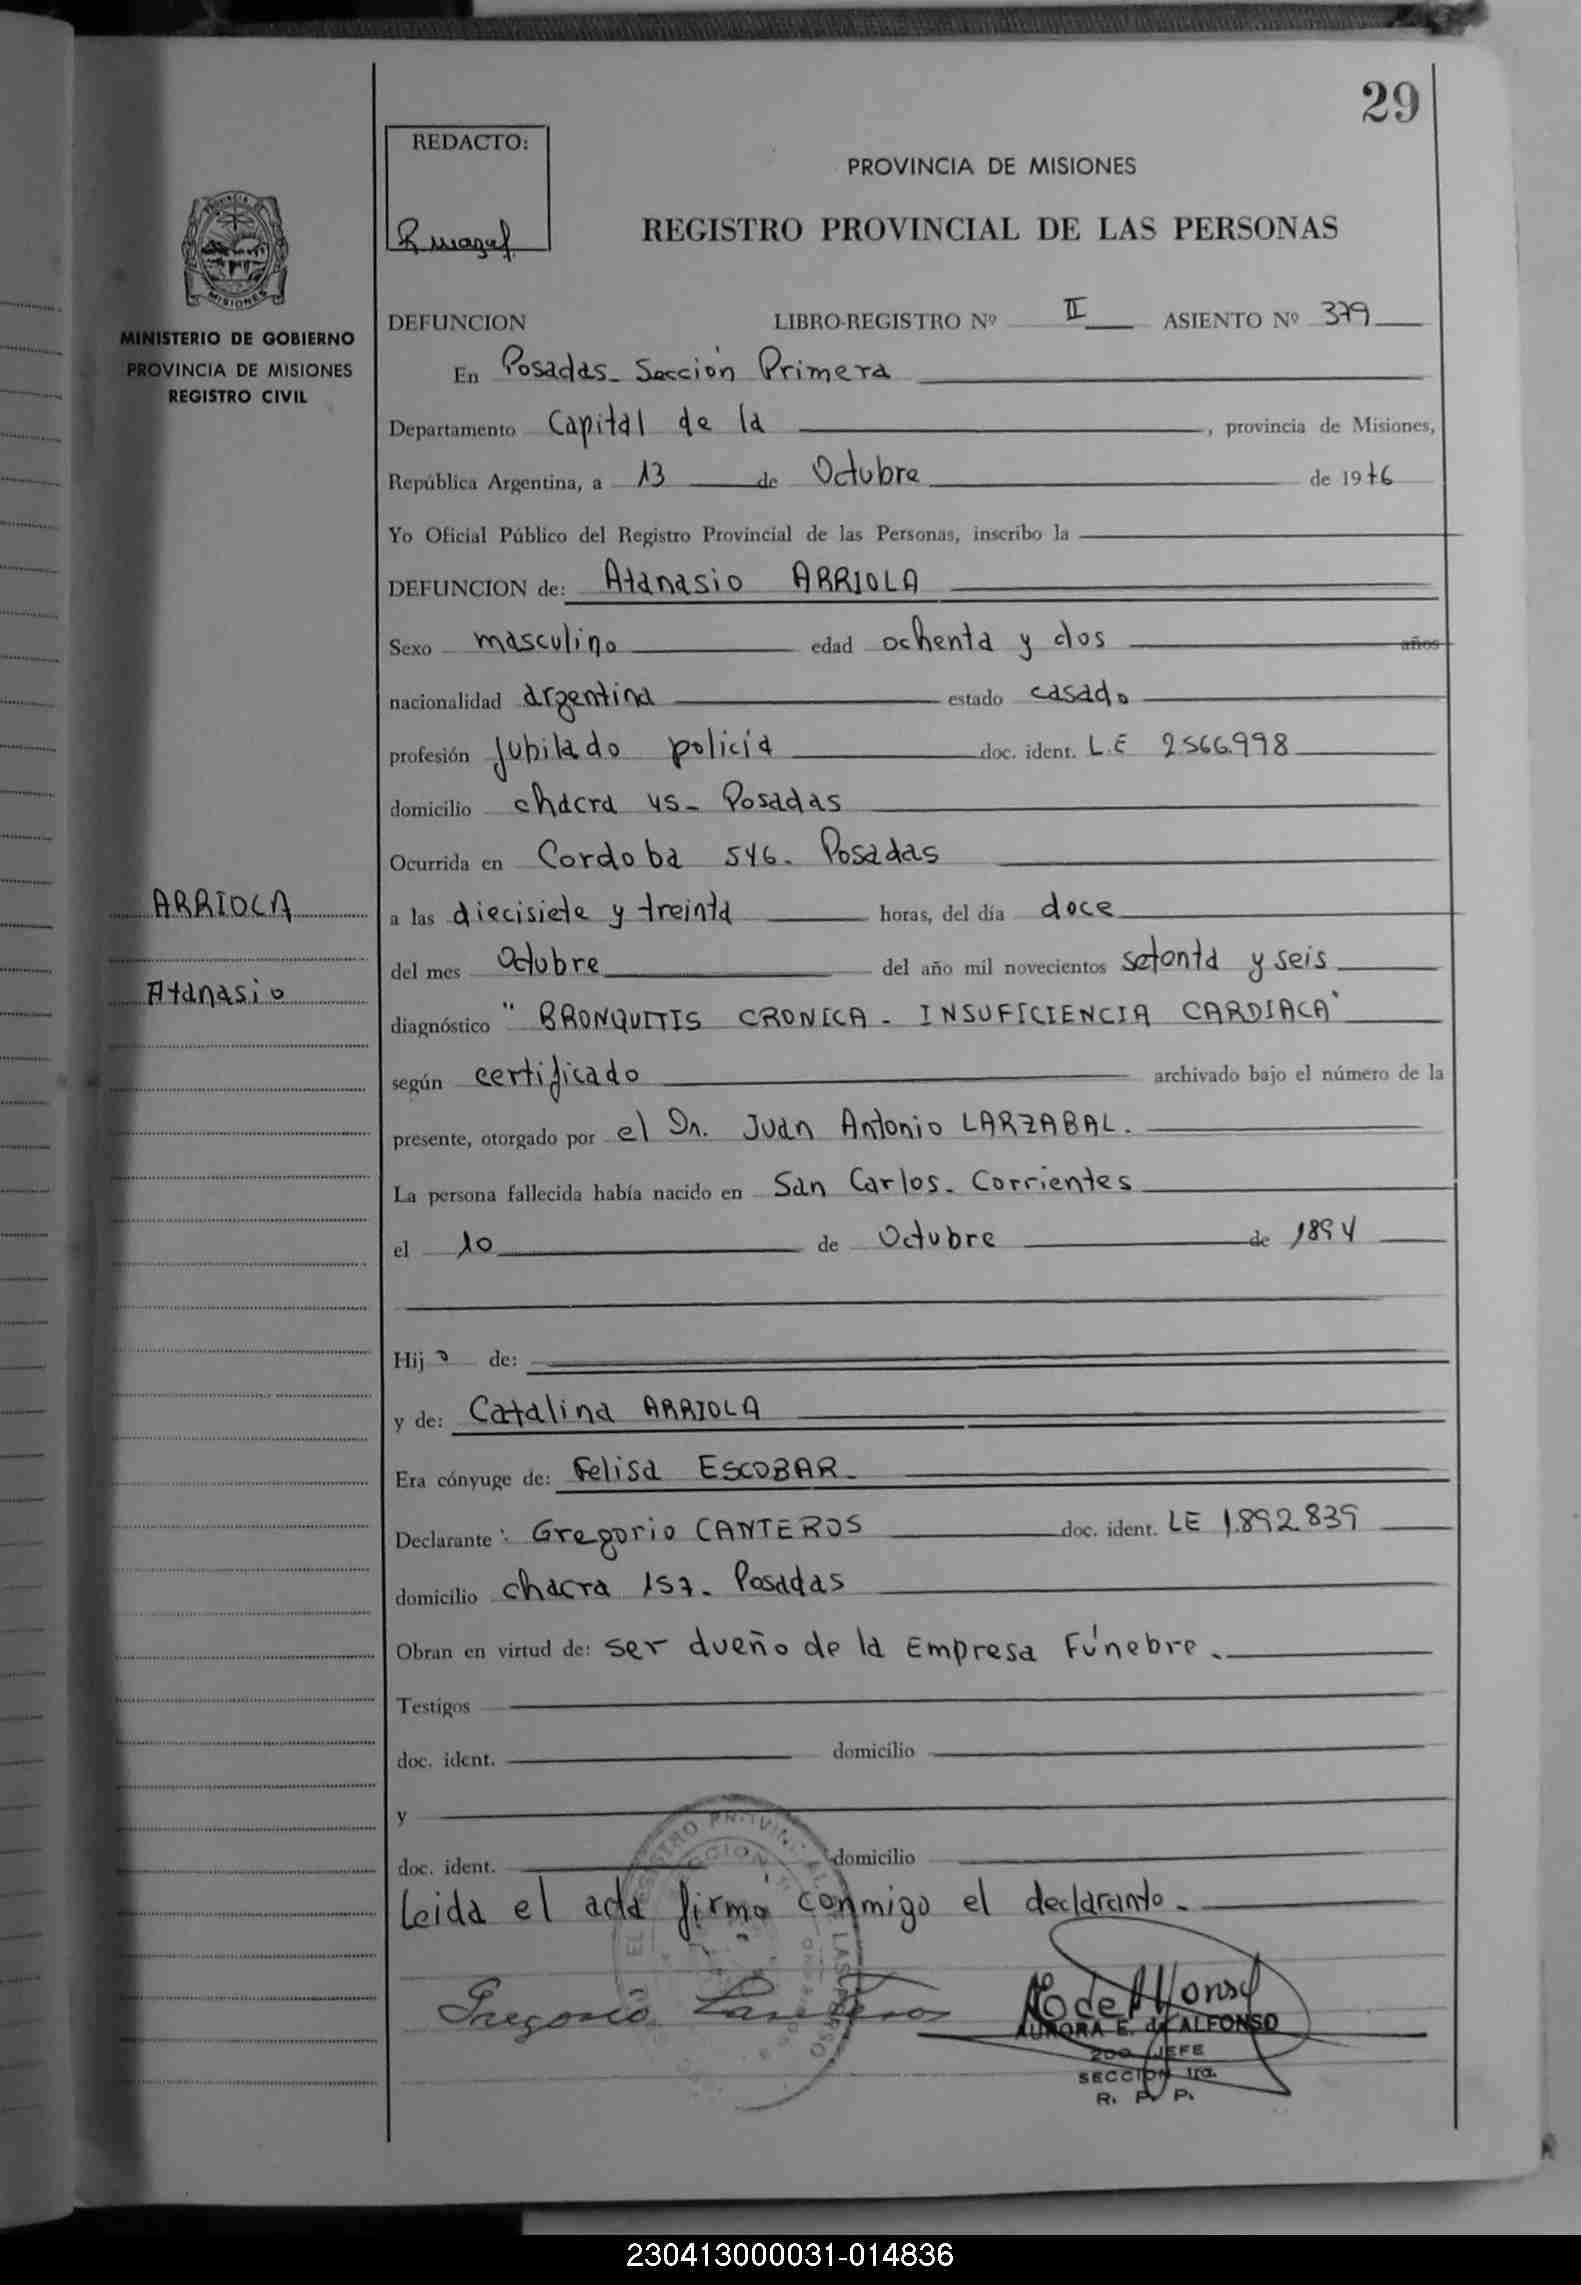 29
REDACTO:
PROVINCIA DE MISIONES
REGISTRO PROVINCIAL DE LAS PERSONAS
MINISTERIO DE GOBIERNO
PROVINCIA DE MISIONES
REGISTRO CIVIL
DEFUNCION LIBRO-REGISTRO Nº II ASIENTO Nº 379
En Posadas - Sección Primera
Departamento Capital de la , provincia de Misiones,
República Argentina, a 13 de Octubre de 1976
Yo Oficial Público del Registro Provincial de las Personas, inscribo la
DEFUNCION de: Atanasio ARRIOLA
Sexo masculino edad ochenta y dos años
nacionalidad argentina estado casado
profesión Jubilado policia doc. ident. L.E 2.566.998
domicilio chacra 45 - Posadas
Ocurrida en Cordoba 546. Posadas
ARRIOLA
a las diecisiete y treinta horas, del día doce
del mes Octubre del año mil novecientos setenta y seis
Atanasio
diagnóstico "BRONQUITIS CRONICA - INSUFICIENCIA CARDIACA"
según certificado archivado bajo el número de la
presente, otorgado por el Dr. Juan Antonio LARZABAL.
La persona fallecida había nacido en San Carlos - Corrientes
el 10 de Octubre de 1894
Hijo de:
y de: Catalina ARRIOLA
Era cónyuge de: Felisa ESCOBAR -
Declarante: Gregorio CANTEROS doc. ident. LE 1.892.839
domicilio chacra 157 - Posadas
Obran en virtud de: ser dueño de la Empresa Fúnebre.
Testigos
doc. ident. domicilio
y
doc. ident. domicilio
Leida el acta firmó conmigo el declarante -
Gregorio Canteros
AURORA E. de ALFONSO
2DO JEFE
SECCION 1ra.
R. P. P.
230413000031-014836